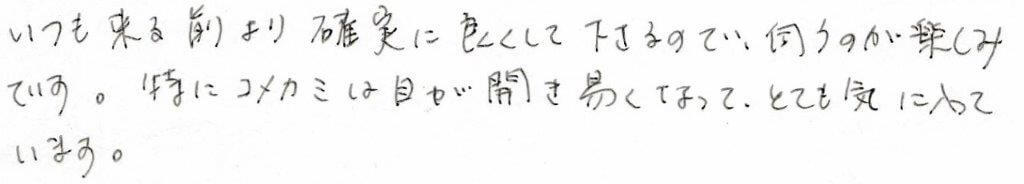 いつも来る前より確実に良くして下さるので、伺うのが楽しみ
です。特にコメカミは目が開き易くなって、とても気に入って
います。